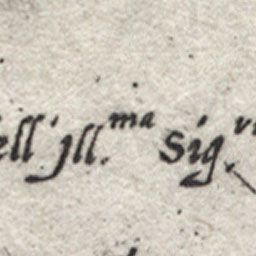 ell' Ill.ma Sig.